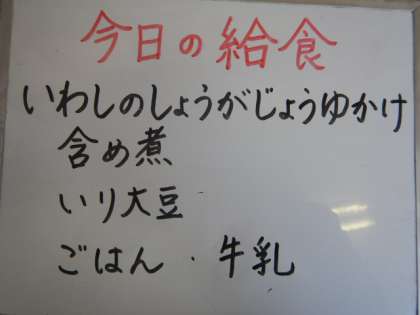 今日の給食
いわしのしょうがじょうゆかけ
含め煮
いり大豆
ごはん・牛乳